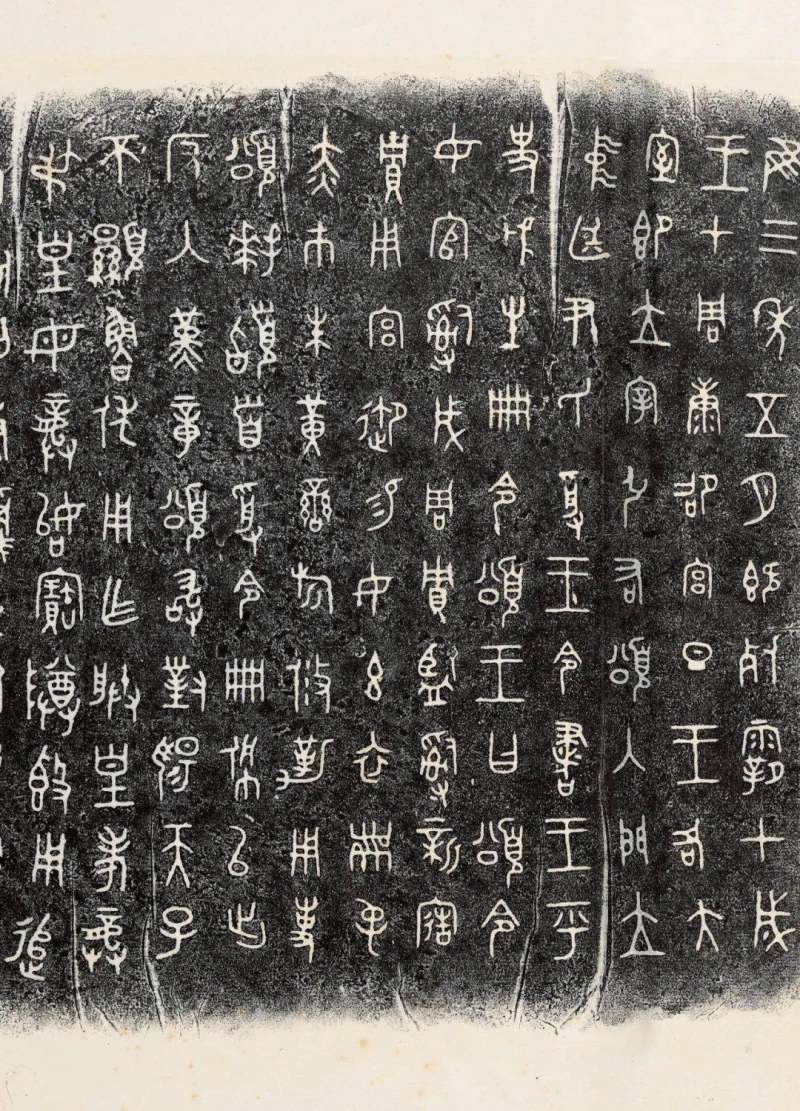 隹三年五月既死霸甲戌
王才周康卲宮旦王各大
室即立宰引右頌入門立
中廷尹氏受王令書王乎
史虢生冊令頌王曰頌令
女官𤔲成周貯監𤔲新造
貯用宮御易女玄衣黹屯
赤巿朱黃鑾旂攸勒用事
頌拜𩒨首受令冊佩以出
反入堇章頌敢對揚天子
不顯魯休用乍朕皇考龔
弔皇母龔姒寶尊簋用追